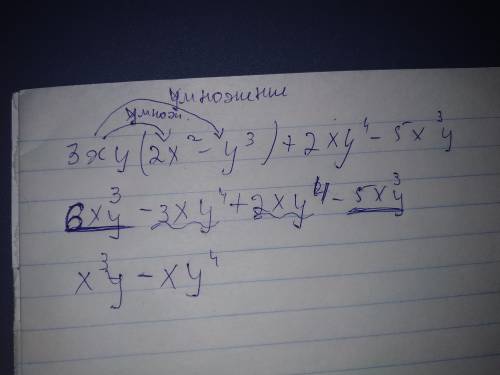 умножение
умнож.
3xy(2x² - y³) + 2xy⁴ - 5x³y
6x³y - 3xy⁴ + 2xy⁴ - 5x³y
x³y - xy⁴